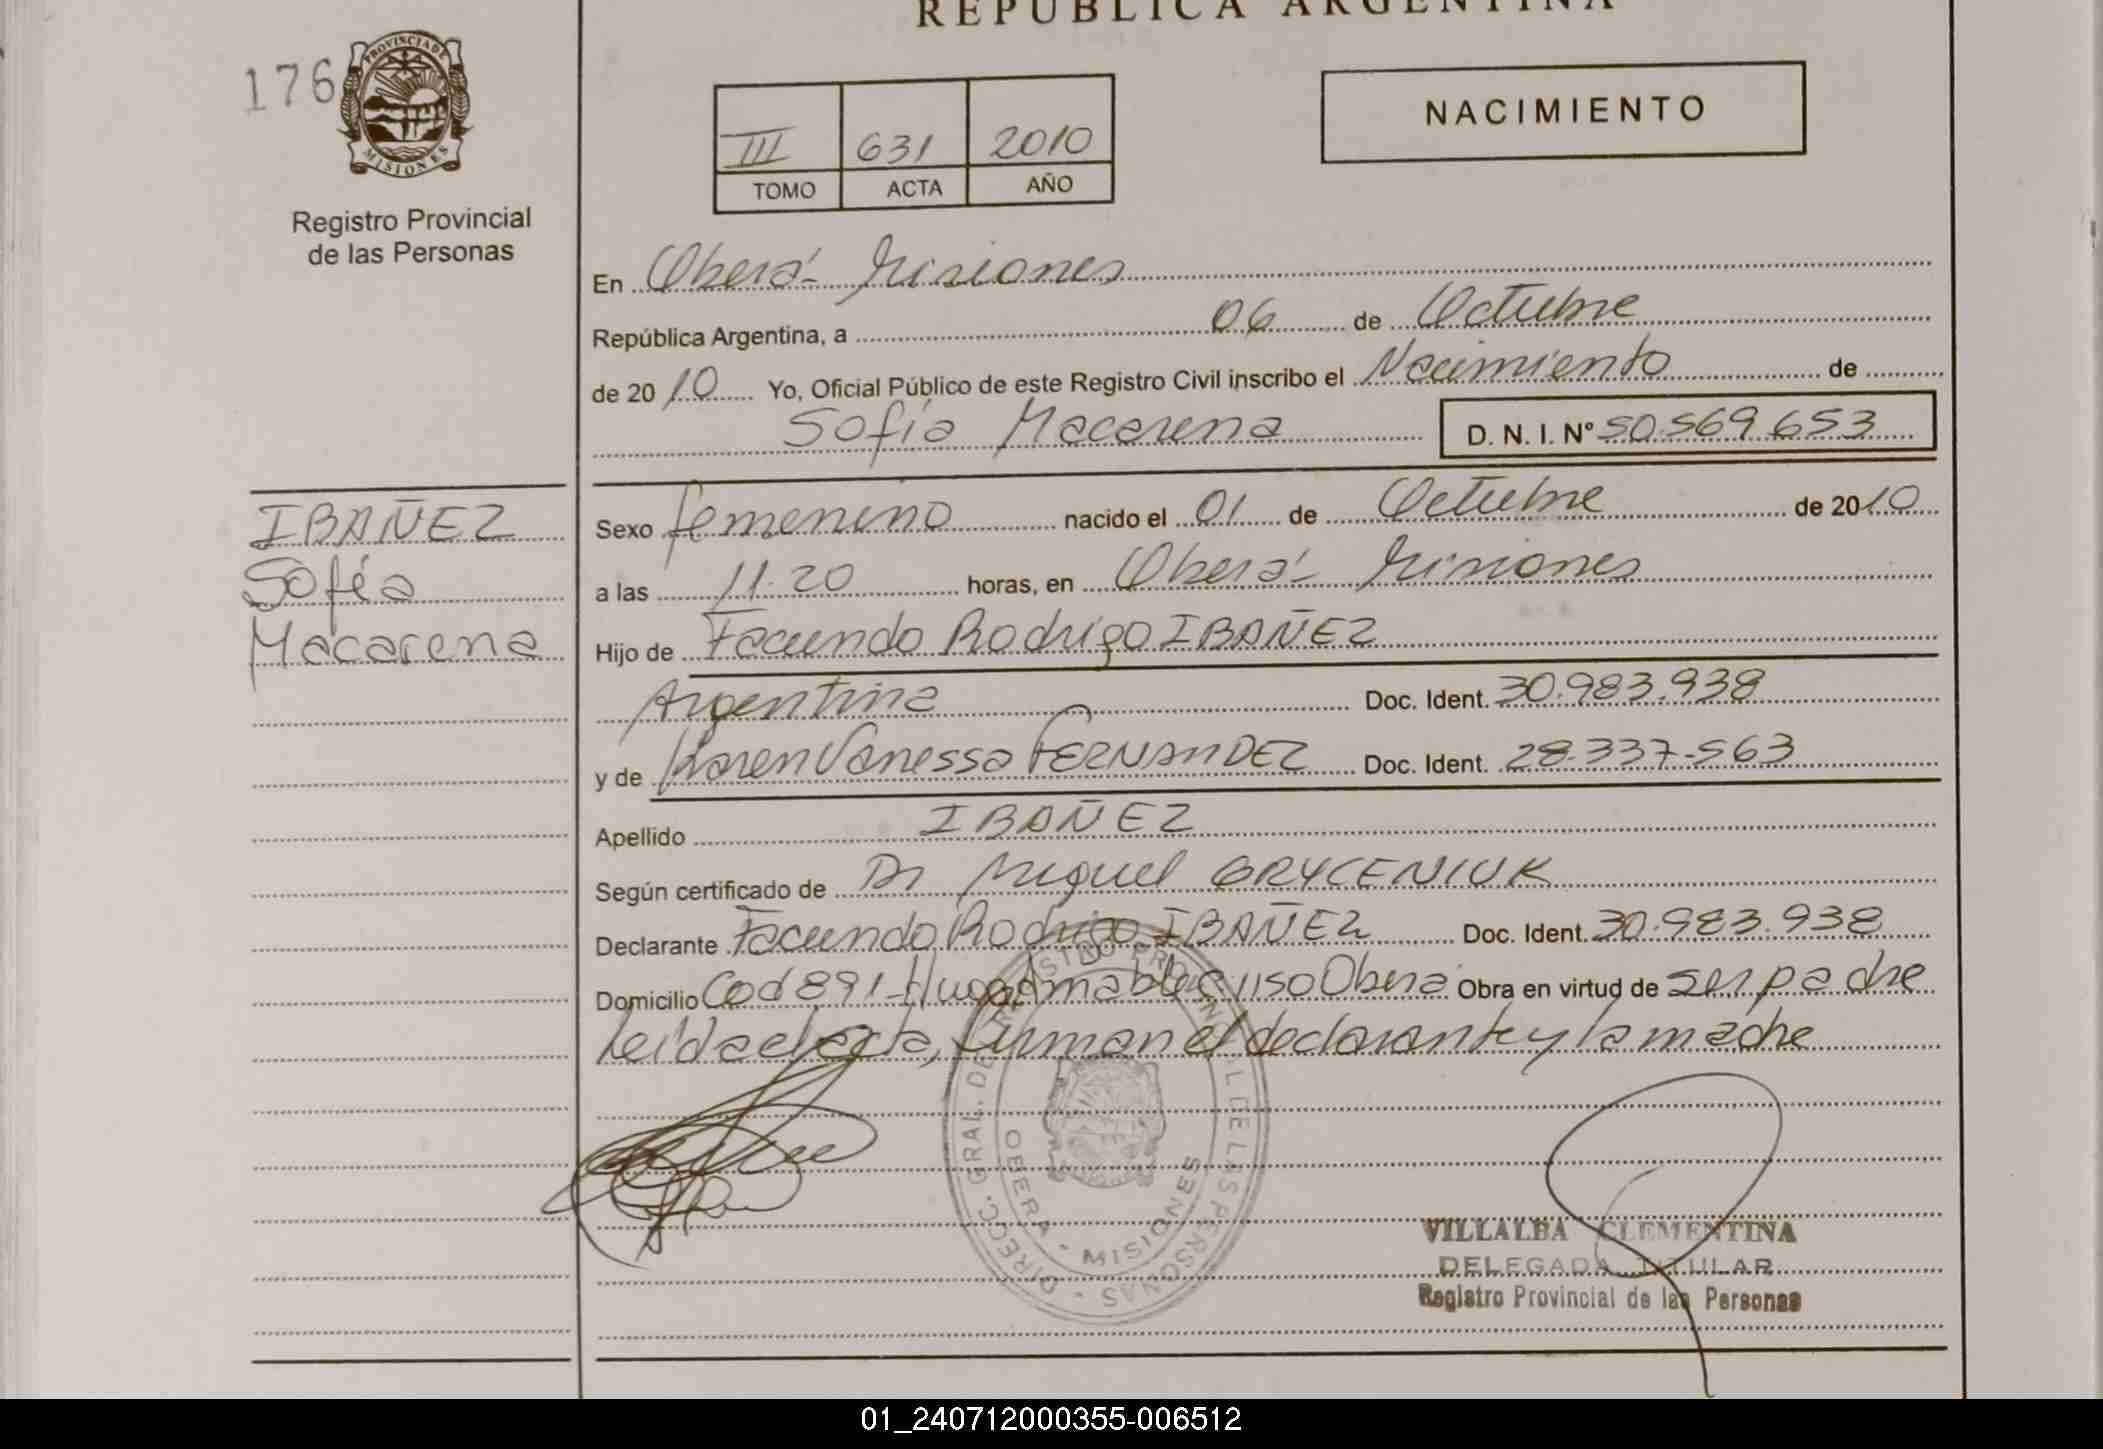 REPUBLICA ARGENTINA
176
PROVINCIA DE MISIONES
Registro Provincial
de las Personas
III 631 2010
TOMO ACTA AÑO
NACIMIENTO
En Oberá - Misiones
República Argentina, a 06 de Octubre
de 2010 Yo, Oficial Público de este Registro Civil inscribo el Nacimiento de
Sofía Macarena D. N. I. Nº 50.569.653
IBAÑEZ
Sofía
Macarena
Sexo femenino nacido el 01 de Octubre de 2010
a las 11.20 horas, en Oberá - Misiones
Hijo de Facundo Rodrigo IBAÑEZ
Argentina Doc. Ident. 30.983.938
y de Karen Vanessa FERNANDEZ Doc. Ident. 28.337.563
Apellido IBAÑEZ
Según certificado de Dr Miguel GRYCENIUK
Declarante Facundo Rodrigo IBAÑEZ Doc. Ident. 30.983.938
Domicilio Cod 891 - Hugo Amable 1150 Oberá Obra en virtud de ser padre
Leída el acta, firman el declarante y la madre
DIRECC. GRAL. DEL REGISTRO PROVINCIAL DE LAS PERSONAS
OBERA - MISIONES
VILLALBA CLEMENTINA
DELEGADA TITULAR
Registro Provincial de las Personas
01_240712000355-006512